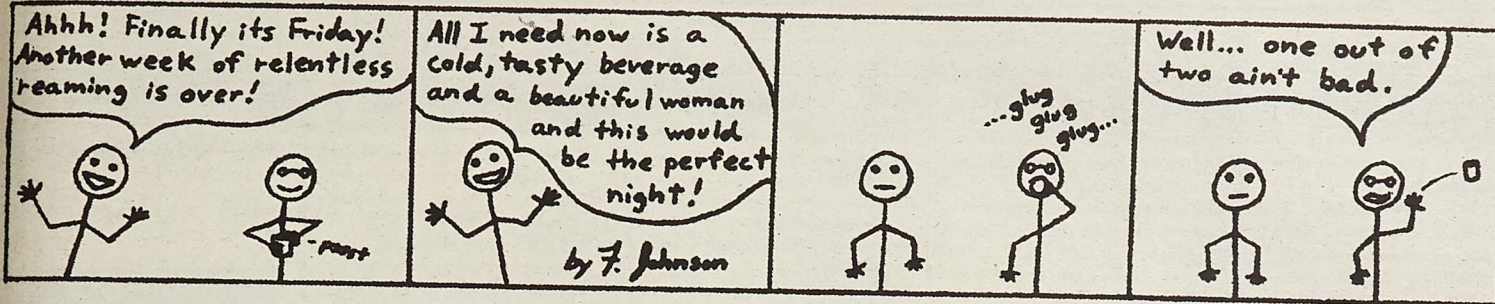 Ahhh! Finally its Friday!
Another week of relentless
reaming is over!
All I need now is a
cold, tasty beverage
and a beautiful woman
and this would
be the perfect
night!
by F. Johnson
...glug
glug
glug...
Well... one out of
two ain't bad.